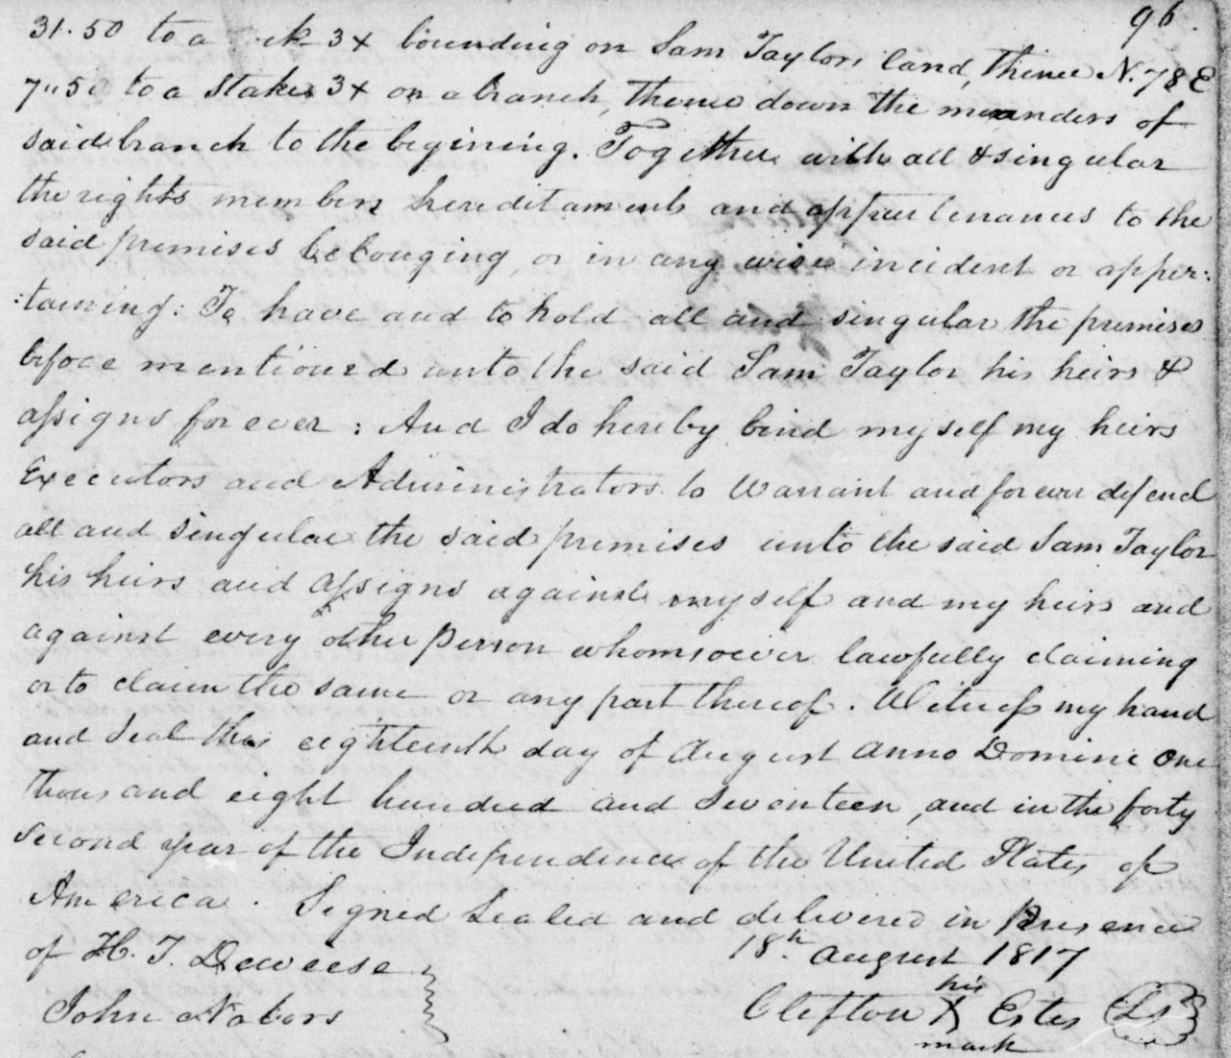 96.
31.50 to a 3x bounding on Sam Taylors land, Thence N. 78 E
7"50 to a Stakes 3x on a branch, Thence down the meanders of
said branch to the begining. Together with all & singular
the rights members hereditaments and appurtenances to the
said premises belonging, or in any wise incident or apper:
:taining: To have and to hold all and singular the premises
before mentioned unto the said Sam Taylor his heirs &
assigns for ever: And I do hereby bind myself my heirs
Executors and Administrators to Warrant and forever defend
all and singular the said premises unto the said Sam Taylor
his heirs and assigns against myself and my heirs and
against every other person whomsoever lawfully claiming
or to claim the same or any part thereof. Witness my hand
and Seal this eighteenth day of August anno Domini One
thousand eight hundred and Seventeen, and in the forty
Second year of the Independence of the United States of
America. Signed Sealed and delivered in Presence
of H. T. Deweese
18th August 1817
John Nabors
Clifton his X mark Estes LS